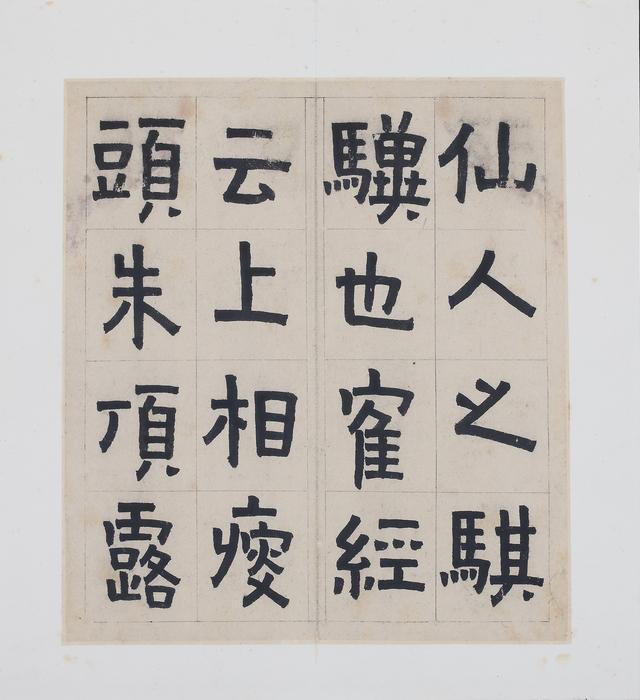 仙人之騏
驥也寉經
云上相瘦
頭朱頂露